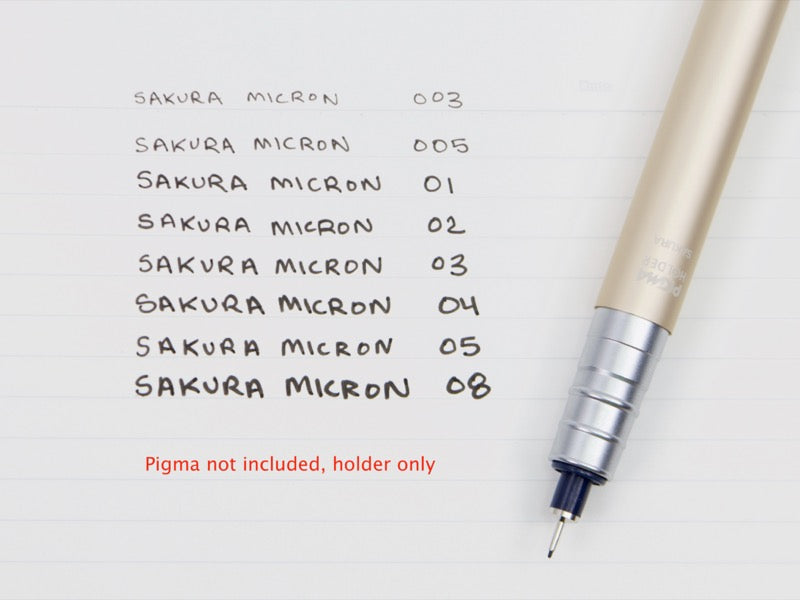 SAKURA MICRON 003
SAKURA MICRON 005
SAKURA MICRON 01
SAKURA MICRON 02
SAKURA MICRON 03
SAKURA MICRON 04
SAKURA MICRON 05
SAKURA MICRON 08
Pigma not included, holder only
PIGMA
HOLDER
SAKURA
Date